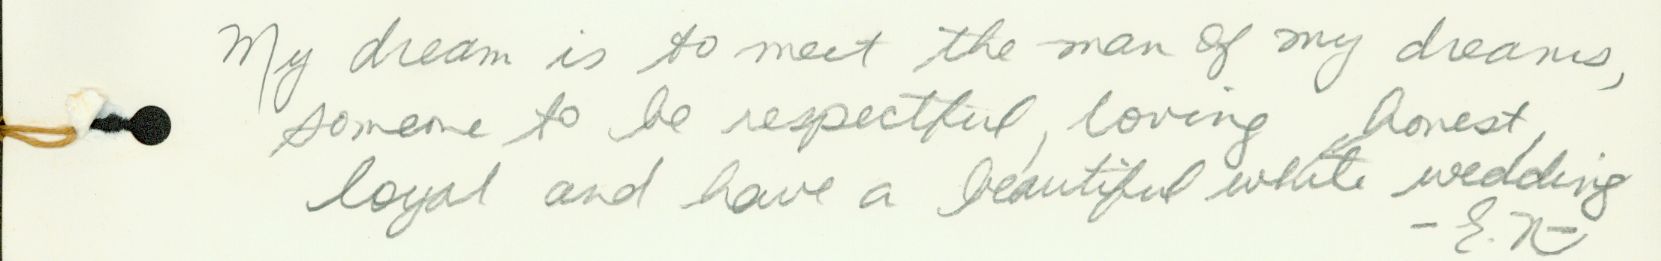 My dream is to meet the man of my dreams,
someone to be respectful, loving, honest,
loyal and have a beautiful white wedding
- E.N-